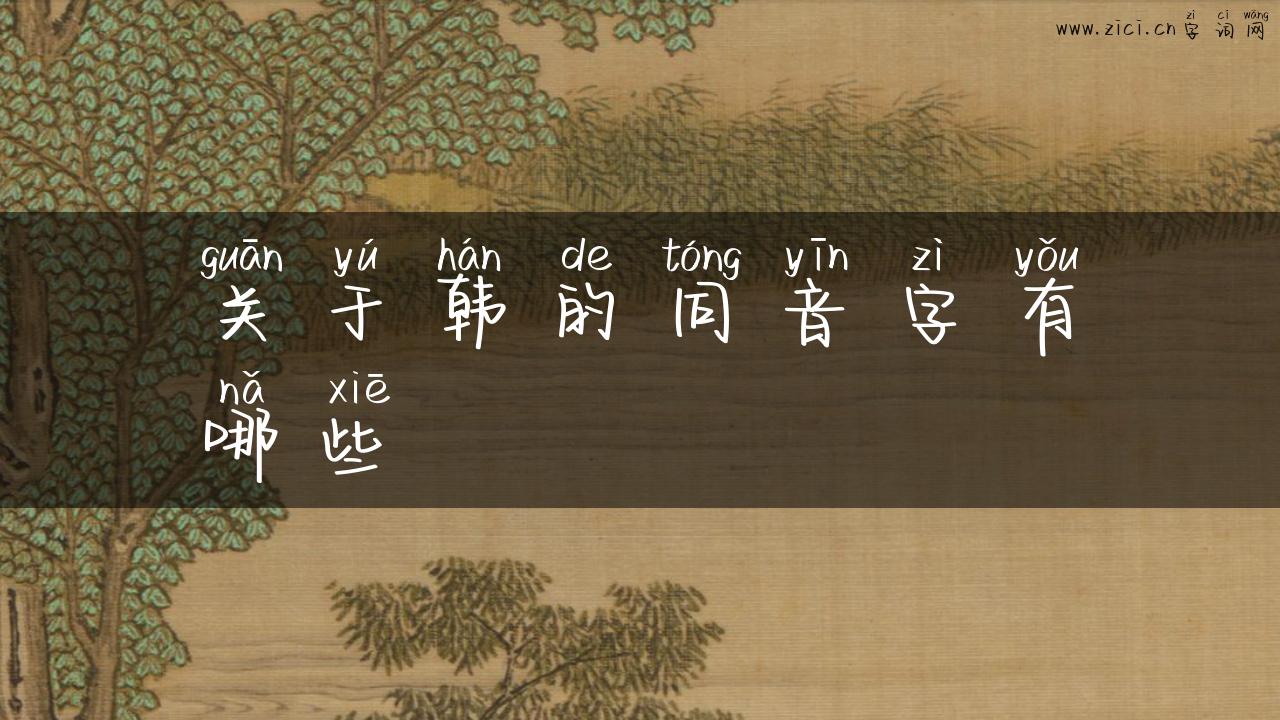 zì cí wǎng
www.zici.cn字词网
guān yú hán de tóng yīn zì yǒu
关于韩的同音字有
nǎ xiē
哪些